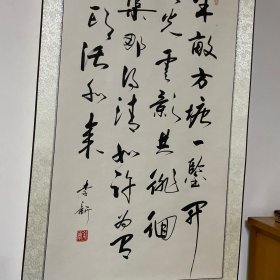 半畝方塘一鑒開
光雲影共徘徊
渠那得清如許為有
頭活水來
李